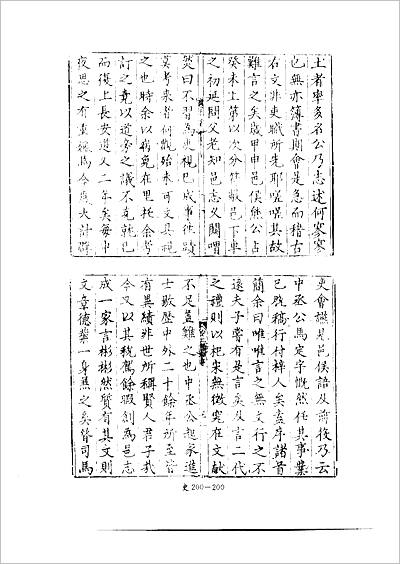 土者率多名公乃志述何寥寥
也無亦簿書期會是急而稽古
右文非吏職所先耶嗟嗟其故
難言之矣歲甲申邑侯熊公占
癸未上第以次分敝邑下車
之初延問父老知邑志久闕喟
歎曰不習為吏視已成事往蹟
莫考來者何觀殆未可文具視
之也時余以病免在里托余考
訂之竟以道旁之議不克就已
而復上長安道又二年矣每中
夜思之有重慨焉今歲大計群
吏會謁見邑侯語及前役乃云
中丞公馬定宇慨然任其事業
已脫稿行付梓人矣盍序諸首
簡余曰唯唯言之無文行之不
遠夫子嘗有是言矣及言二代
之禮則以杞宋無徵寃在文獻
不足蓋難之也中丞公起家進
士敭歷中外二十餘年所至皆
有異績非世所稱賢人君子哉
今又以其稅駕餘暇創為邑志
成一家言彬彬然質有其文則
文章德業一身兼之矣昔司馬
史 200—200